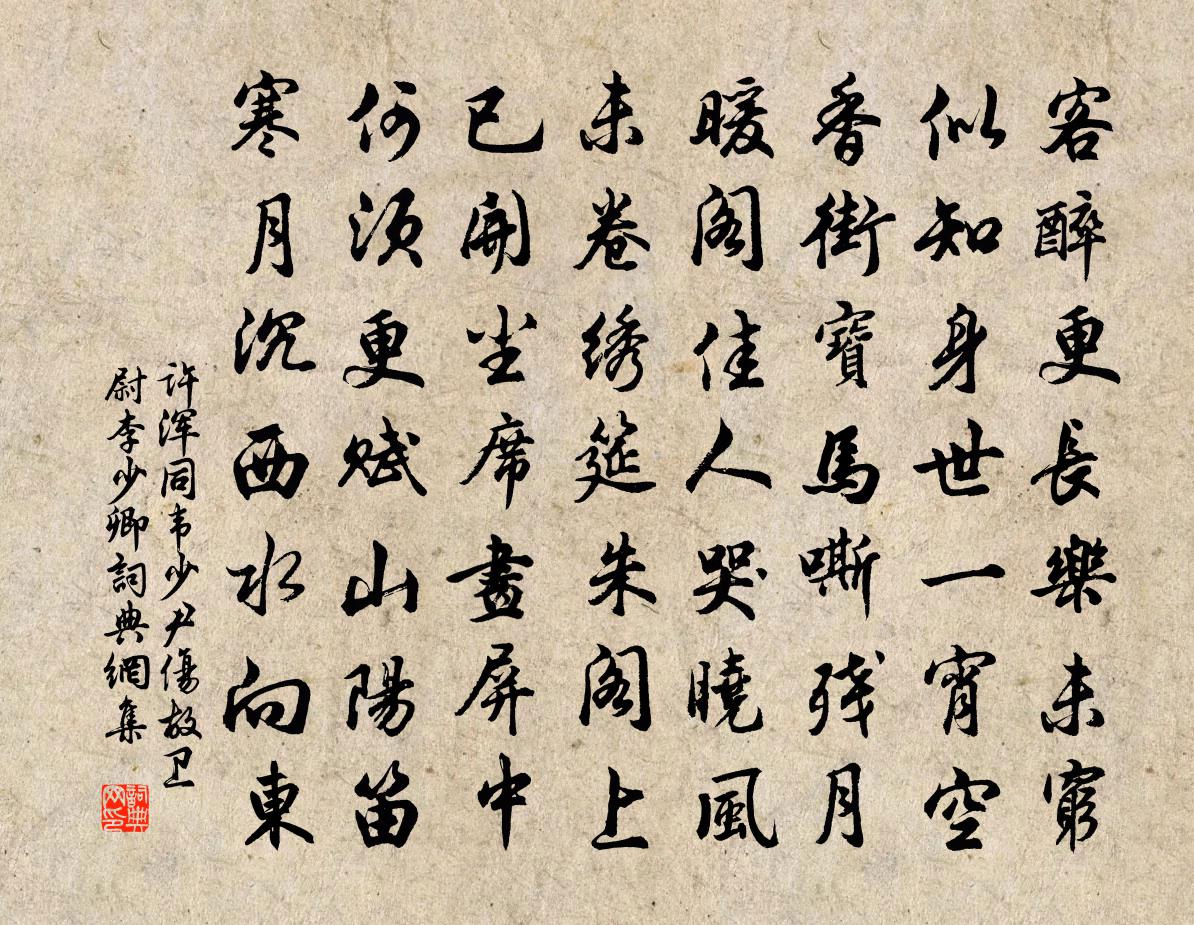 客醉更長樂未窮
似知身世一宵空
香街寶馬嘶残月
暖阁佳人哭曉風
未卷绣筵朱阁上
已開坐席畫屏中
何须更赋山陽笛
寒月沉西水向東
许浑同韦少尹傷故卫
尉李少卿詞典網集
詞典
网印